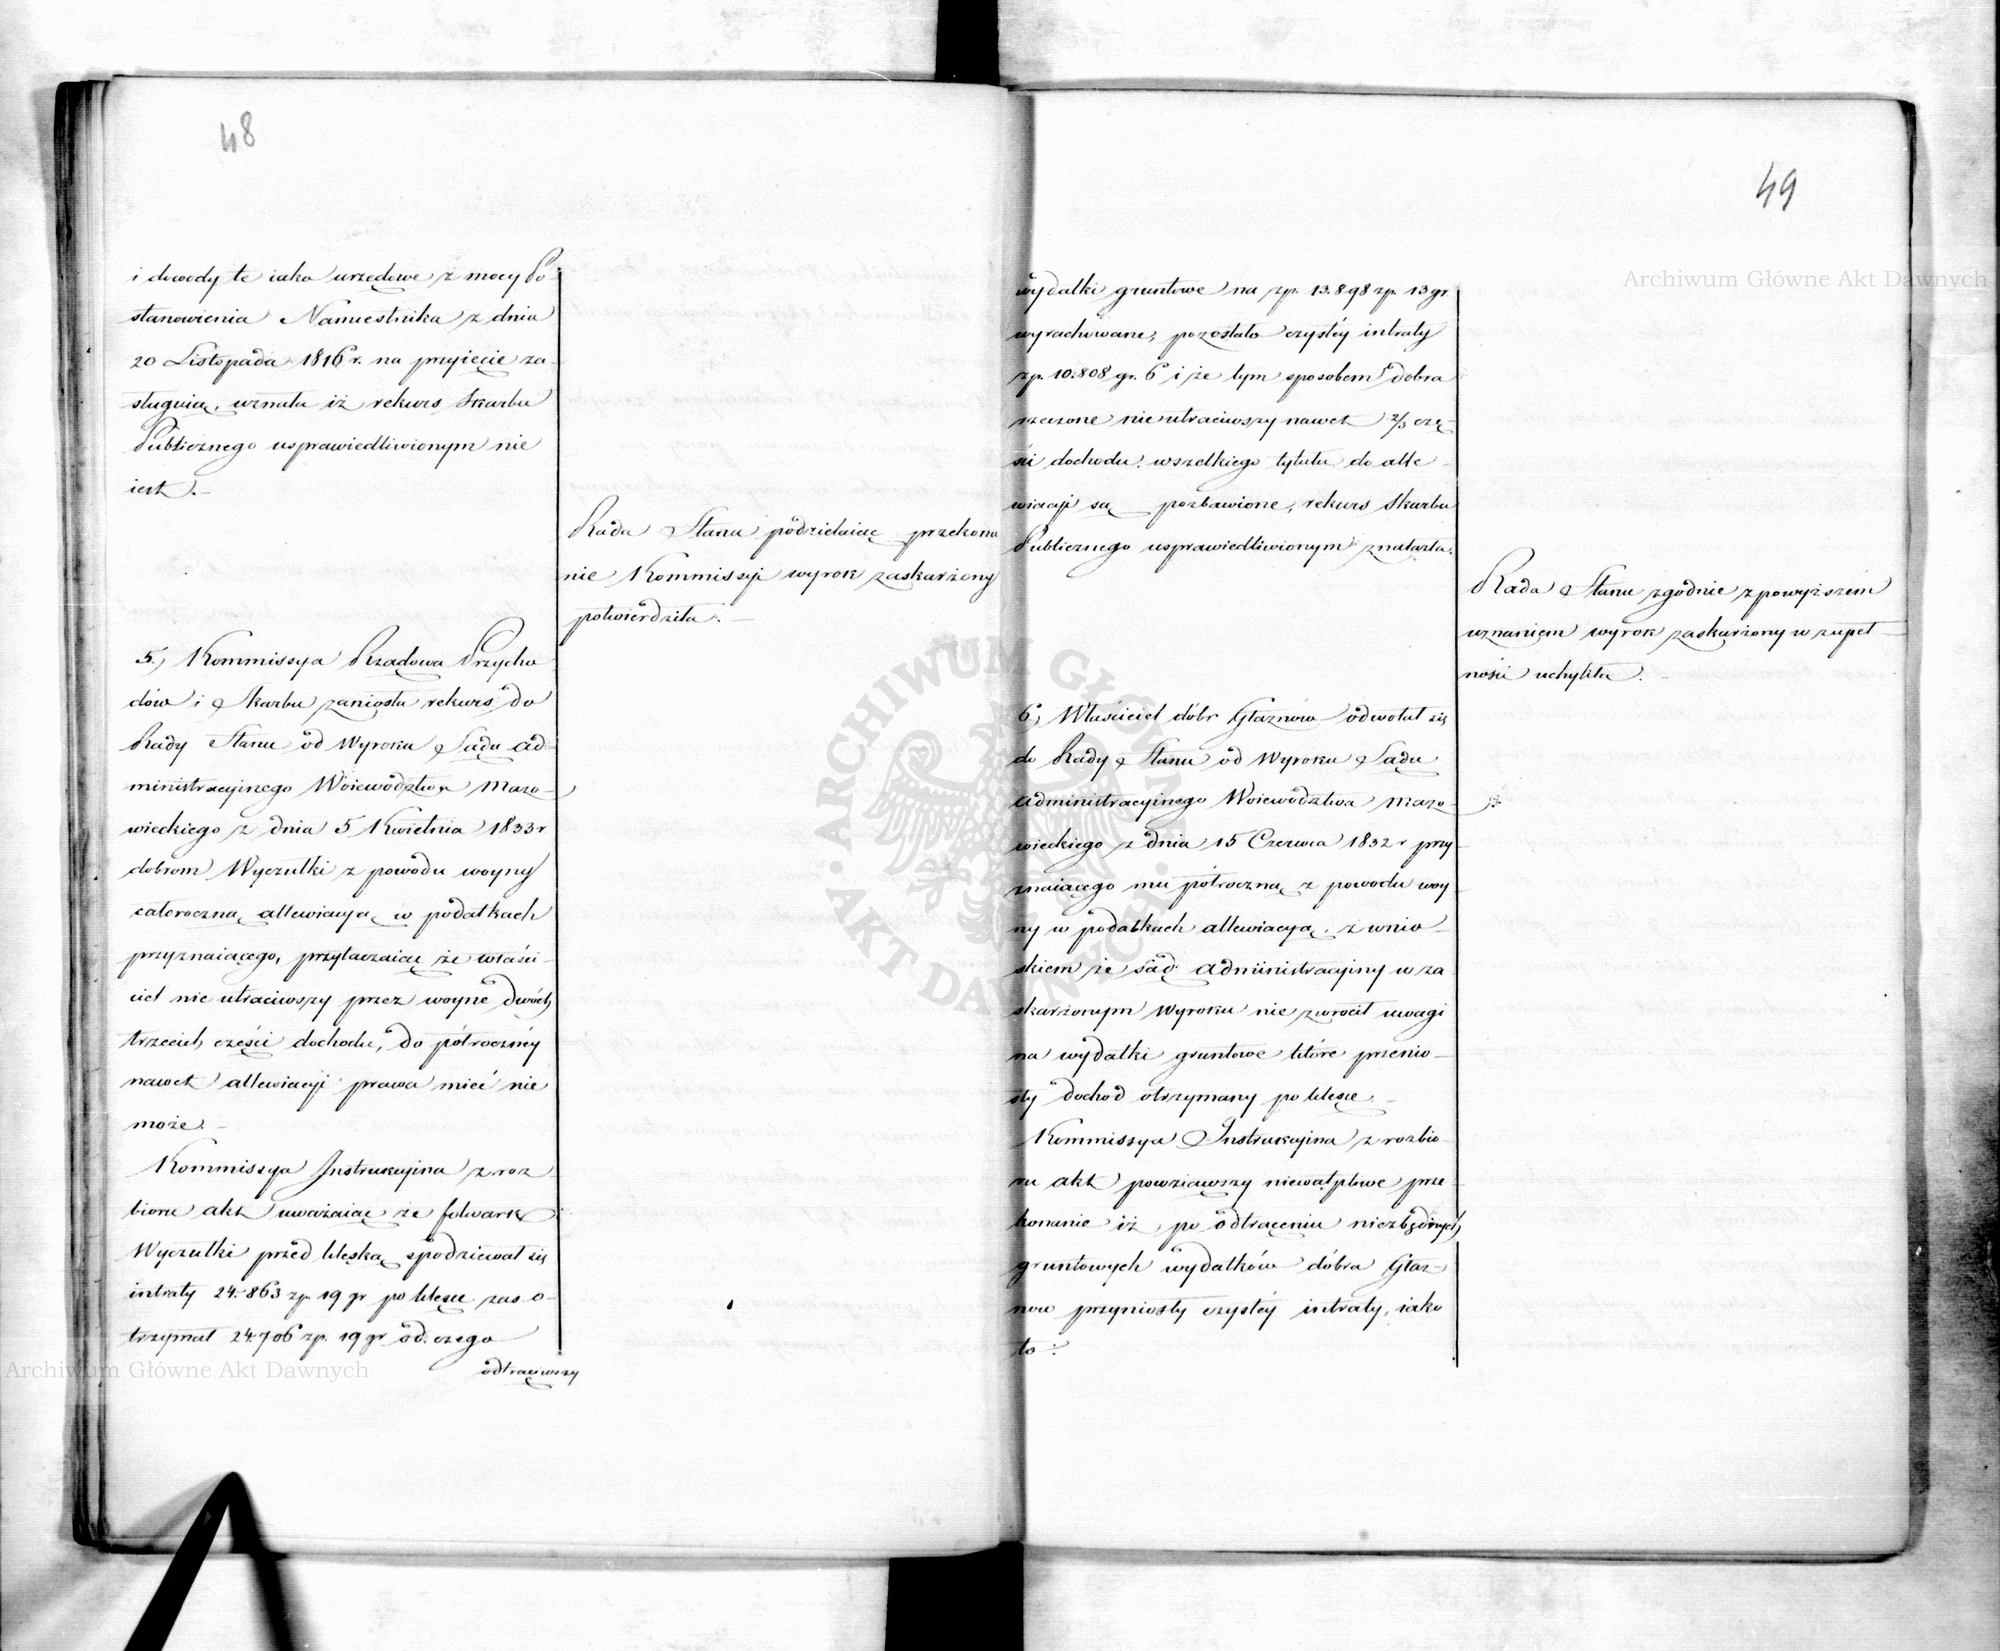 48
i dowody te iako urzędowe z mocy Po-
stanowienia Namiestnika z dnia
20 Listopada 1816 r. na przyięcie za-
sługuią, uznała iż rekurs Skarbu
Publicznego usprawiedliwionym nie
iest.
Rada Stanu podzielaiąc przekona
nie Kommissyi wyrok zaskarżony
potwierdziła.
5, Kommissya Rządowa Przycho
dów i Skarbu zaniosła rekurs do
Rady Stanu od Wyroku Sądu Ad-
ministracyinego Woiewództwa Mazo-
wieckiego z dnia 5 Kwietnia 1833 r
dobrom Wyczułki z powodu woyny
całoroczną allewiacyą w podatkach
przyznaiącego, przytaczaiąc że właści-
ciel nie utraciwszy przez woynę dwóch
trzecich części dochodu, do półroczney
nawet allewiacyi prawa mieć nie
może.
Kommissya Instrukcyina z roz
bioru akt uważaiąc że folwark
Wyczułki przed klęską spodziewał się
intraty 24.863 zp. 19 gr po klęsce zaś o-
trzymał 24.706 zp. 19 gr od czego
odtrąciwszy
49
wydatki gruntowe na zp. 13.898 zp. 13 gr.
wyrachowane, pozostało czystéy intraty
zp. 10.808 gr. 6 i że tym sposobem dobra
rzeczone nie utraciwszy nawet 2/3 czę
ści dochodu, wszelkiego tytułu do alle-
wiacyi są pozbawione, rekurs Skarbu
Publicznego usprawiedliwionym znalazła.
Rada Stanu zgodnie z powyższém
uznaniem wyrok zaskarżony w zupeł-
ności uchyliła.
6, Właściciel dóbr Głaznów odwołał się
do Rady Stanu od Wyroku Sądu
Administracyinego Woiewództwa Mazo-
wieckiego z dnia 15 Czerwca 1832 r przy
znaiącego mu półroczną z powodu woy
ny w podatkach allewiacyą, z wnio-
skiem że Sąd Administracyiny w za
skarżonym Wyroku nie zwrócił uwagi
na wydatki gruntowe które przenio-
sły dochod otrzymany po klęsce.
Kommissya Instrukcyina z rozbio-
ru akt powziąwszy niewątpliwe prze-
konanie iż po odtrąceniu niezbędnych
gruntowych wydatków dobra Głaz-
now przyniosły czystéy intraty, iako
to:
Archiwum Główne Akt Dawnych
Archiwum Główne Akt Dawnych
ARCHIWUM GŁÓWNE AKT DAWNYCH